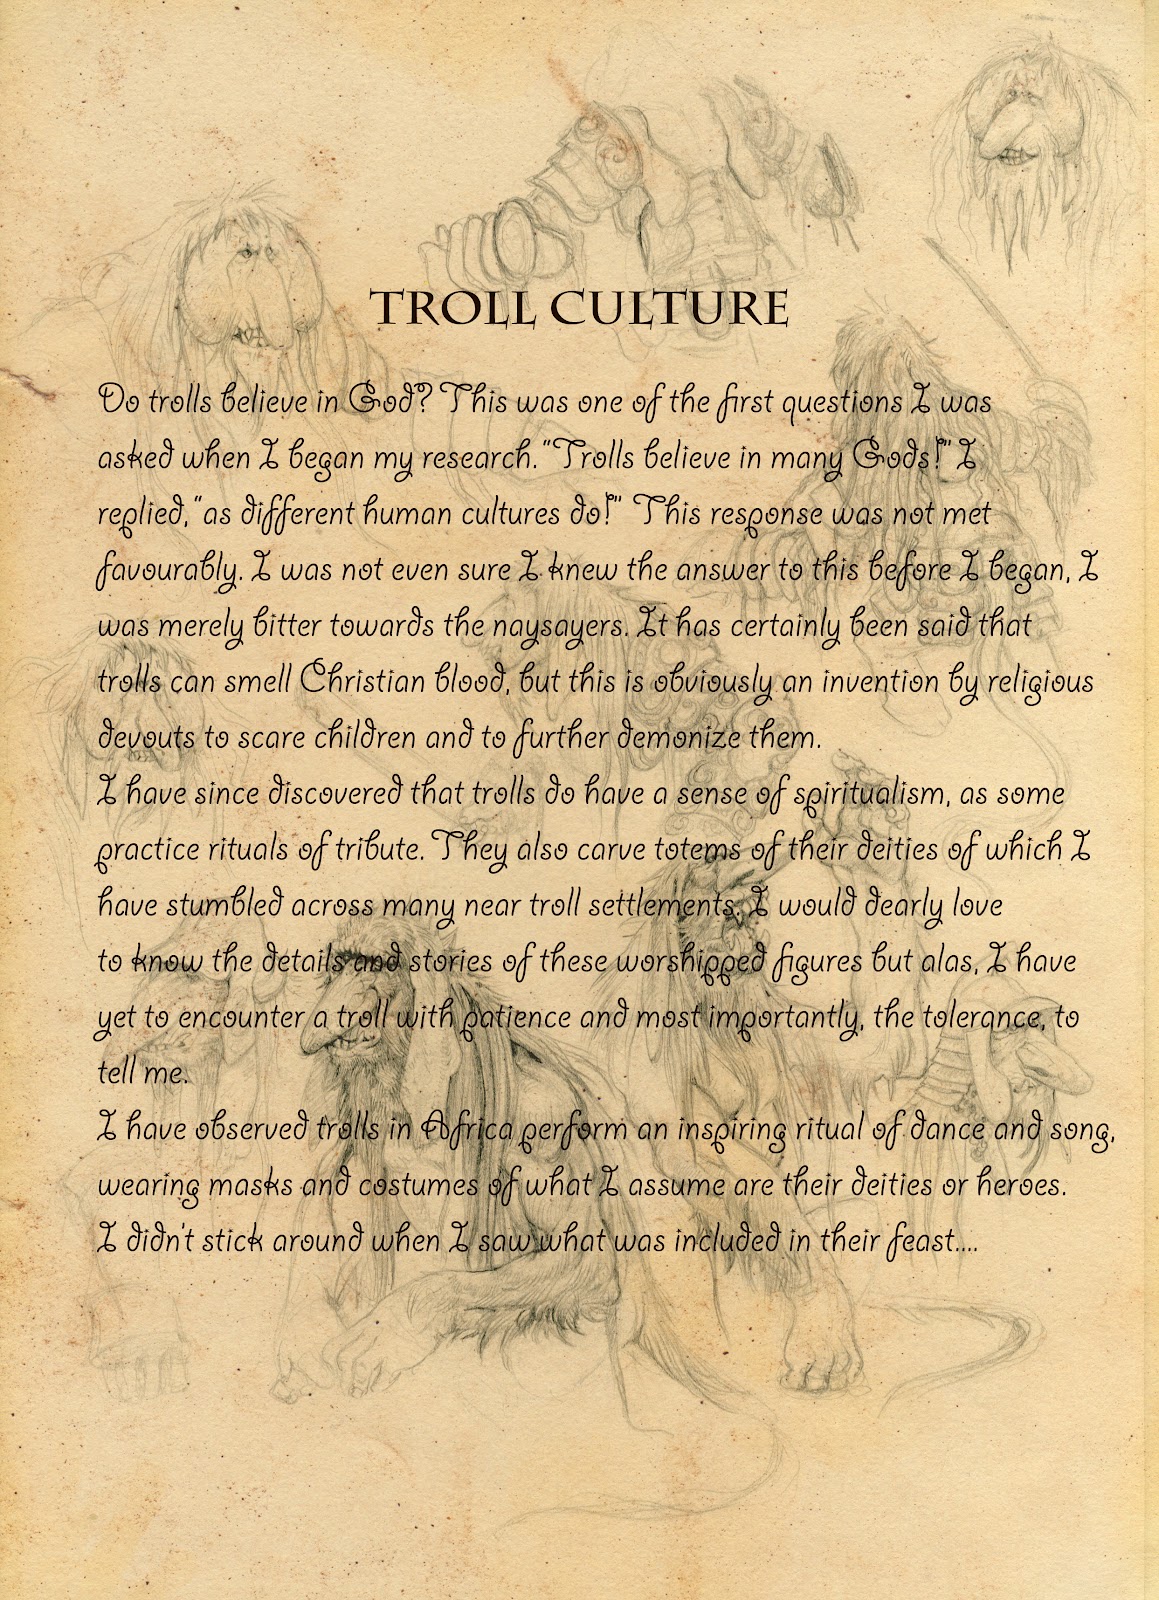 TROLL CULTURE
Do trolls believe in God? This was one of the first questions I was
asked when I began my research. "Trolls believe in many Gods!" I
replied, "as different human cultures do!" This response was not met
favourably. I was not even sure I knew the answer to this before I began, I
was merely bitter towards the naysayers. It has certainly been said that
trolls can smell Christian blood, but this is obviously an invention by religious
devouts to scare children and to further demonize them.
I have since discovered that trolls do have a sense of spiritualism, as some
practice rituals of tribute. They also carve totems of their deities of which I
have stumbled across many near troll settlements. I would dearly love
to know the details and stories of these worshipped figures but alas, I have
yet to encounter a troll with patience and most importantly, the tolerance, to
tell me.
I have observed trolls in Africa perform an inspiring ritual of dance and song,
wearing masks and costumes of what I assume are their deities or heroes.
I didn't stick around when I saw what was included in their feast....